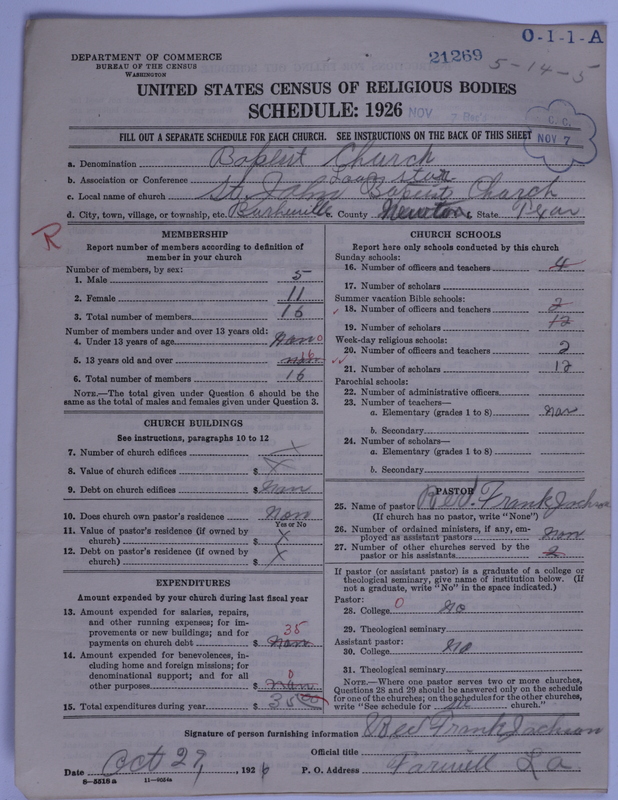 O-1-1-A
21269 5-14-5
DEPARTMENT OF COMMERCE
BUREAU OF THE CENSUS
WASHINGTON
UNITED STATES CENSUS OF RELIGIOUS BODIES
SCHEDULE: 1926
NOV 7
C. C.
NOV 7
FILL OUT A SEPARATE SCHEDULE FOR EACH CHURCH. SEE INSTRUCTIONS ON THE BACK OF THIS SHEET
a. Denomination Baptist Church
b. Association or Conference
c. Local name of church St. John Baptist Church
d. City, town, village, or township, etc. e. County Newton f. State Texas
R
MEMBERSHIP
Report number of members according to definition of
member in your church
Number of members, by sex:
1. Male 5
2. Female 11
3. Total number of members 16
Number of members under and over 13 years old:
4. Under 13 years of age 0
5. 13 years old and over 16
6. Total number of members 16
NOTE.—The total given under Question 6 should be the
same as the total of males and females given under Question 3.
CHURCH BUILDINGS
See instructions, paragraphs 10 to 12
7. Number of church edifices X
8. Value of church edifices $ X
9. Debt on church edifices $
10. Does church own pastor's residence
Yes or No
11. Value of pastor's residence (if owned by
church) $ X
12. Debt on pastor's residence (if owned by
church) $ X
EXPENDITURES
Amount expended by your church during last fiscal year
13. Amount expended for salaries, repairs,
and other running expenses; for im-
provements or new buildings; and for
payments on church debt $ 35
14. Amount expended for benevolences, in-
cluding home and foreign missions; for
denominational support; and for all
other purposes $ 0
15. Total expenditures during year $ 35
CHURCH SCHOOLS
Report here only schools conducted by this church
Sunday schools:
16. Number of officers and teachers 4
17. Number of scholars
Summer vacation Bible schools:
18. Number of officers and teachers 2
19. Number of scholars 12
Week-day religious schools:
20. Number of officers and teachers 2
21. Number of scholars 12
Parochial schools:
22. Number of administrative officers
23. Number of teachers—
a. Elementary (grades 1 to 8)
b. Secondary
24. Number of scholars—
a. Elementary (grades 1 to 8)
b. Secondary
PASTOR
25. Name of pastor Rev. Frank Jackson
(If church has no pastor, write "None")
26. Number of ordained ministers, if any, em-
ployed as assistant pastors
27. Number of other churches served by the
pastor or his assistants 2
If pastor (or assistant pastor) is a graduate of a college or
theological seminary, give name of institution below. (If
not a graduate, write "No" in the space indicated.)
Pastor:
28. College 0 no
29. Theological seminary
Assistant pastor:
30. College no
31. Theological seminary
NOTE.—Where one pastor serves two or more churches,
Questions 28 and 29 should be answered only on the schedule
for one of the churches; on the schedules for the other churches,
write "See schedule for church."
Signature of person furnishing information Rev Frank Jackson
Official title
Date Oct 29, 1926 P. O. Address Farwell La
8—5518a 11—9054a